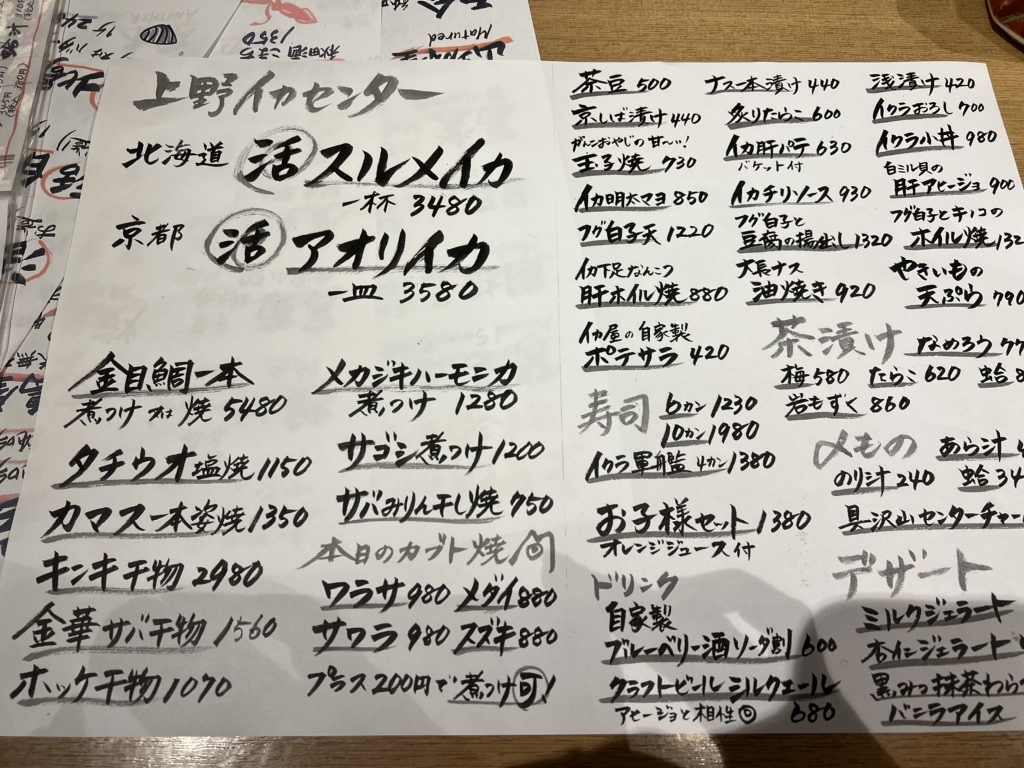 Matured
秋田酒こまち
1350
上野イカセンター
北海道 活 スルメイカ
一杯 3480
京都 活 アオリイカ
一皿 3580
金目鯛一本
煮つけ 又は 焼 5480
タチウオ塩焼 1150
カマス一本姿焼 1350
キンキ干物 2980
金華サバ干物 1560
ホッケ干物 1070
メカジキハーモニカ
煮つけ 1280
サゴシ煮つけ 1200
サバみりん干し焼 750
本日のカブト焼
ワラサ 980 メダイ 880
サワラ 980 スズキ 880
プラス200円で煮つけ可!
茶豆 500
ナス一本漬け 440
浅漬け 420
京しば漬け 440
炙りたらこ 600
イクラおろし 700
がんこおやじの甘〜い!
玉子焼 730
イカ肝パテ 630
バケット付
イクラ小丼 980
イカ明太マヨ 850
イカチリソース 930
白ミル貝の
肝アヒージョ 900
フグ白子天 1220
フグ白子と
豆腐の揚出し 1320
フグ白子とキノコの
ホイル焼 132
イカ下足なんこつ
肝ホイル焼 880
大長ナス
油焼き 920
やきいもの
天ぷら 790
イカ屋の自家製
ポテサラ 420
茶漬け なめろう 77
梅 580 たらこ 620 蛤 8
岩もずく 860
寿司 6カン 1230
10カン 1980
イクラ軍艦 4カン 1380
〆もの あら汁 4
のり汁 240 蛤 34
お子様セット 1380
オレンジジュース付
貝沢山センターチャー
ドリンク
自家製
ブルーベリー酒ソーダ割 600
クラフトビール シルクエール
アヒージョと相性◎ 680
デザート
ミルクジェラート
杏仁ジェラート
黒みつ抹茶わらび
バニラアイス